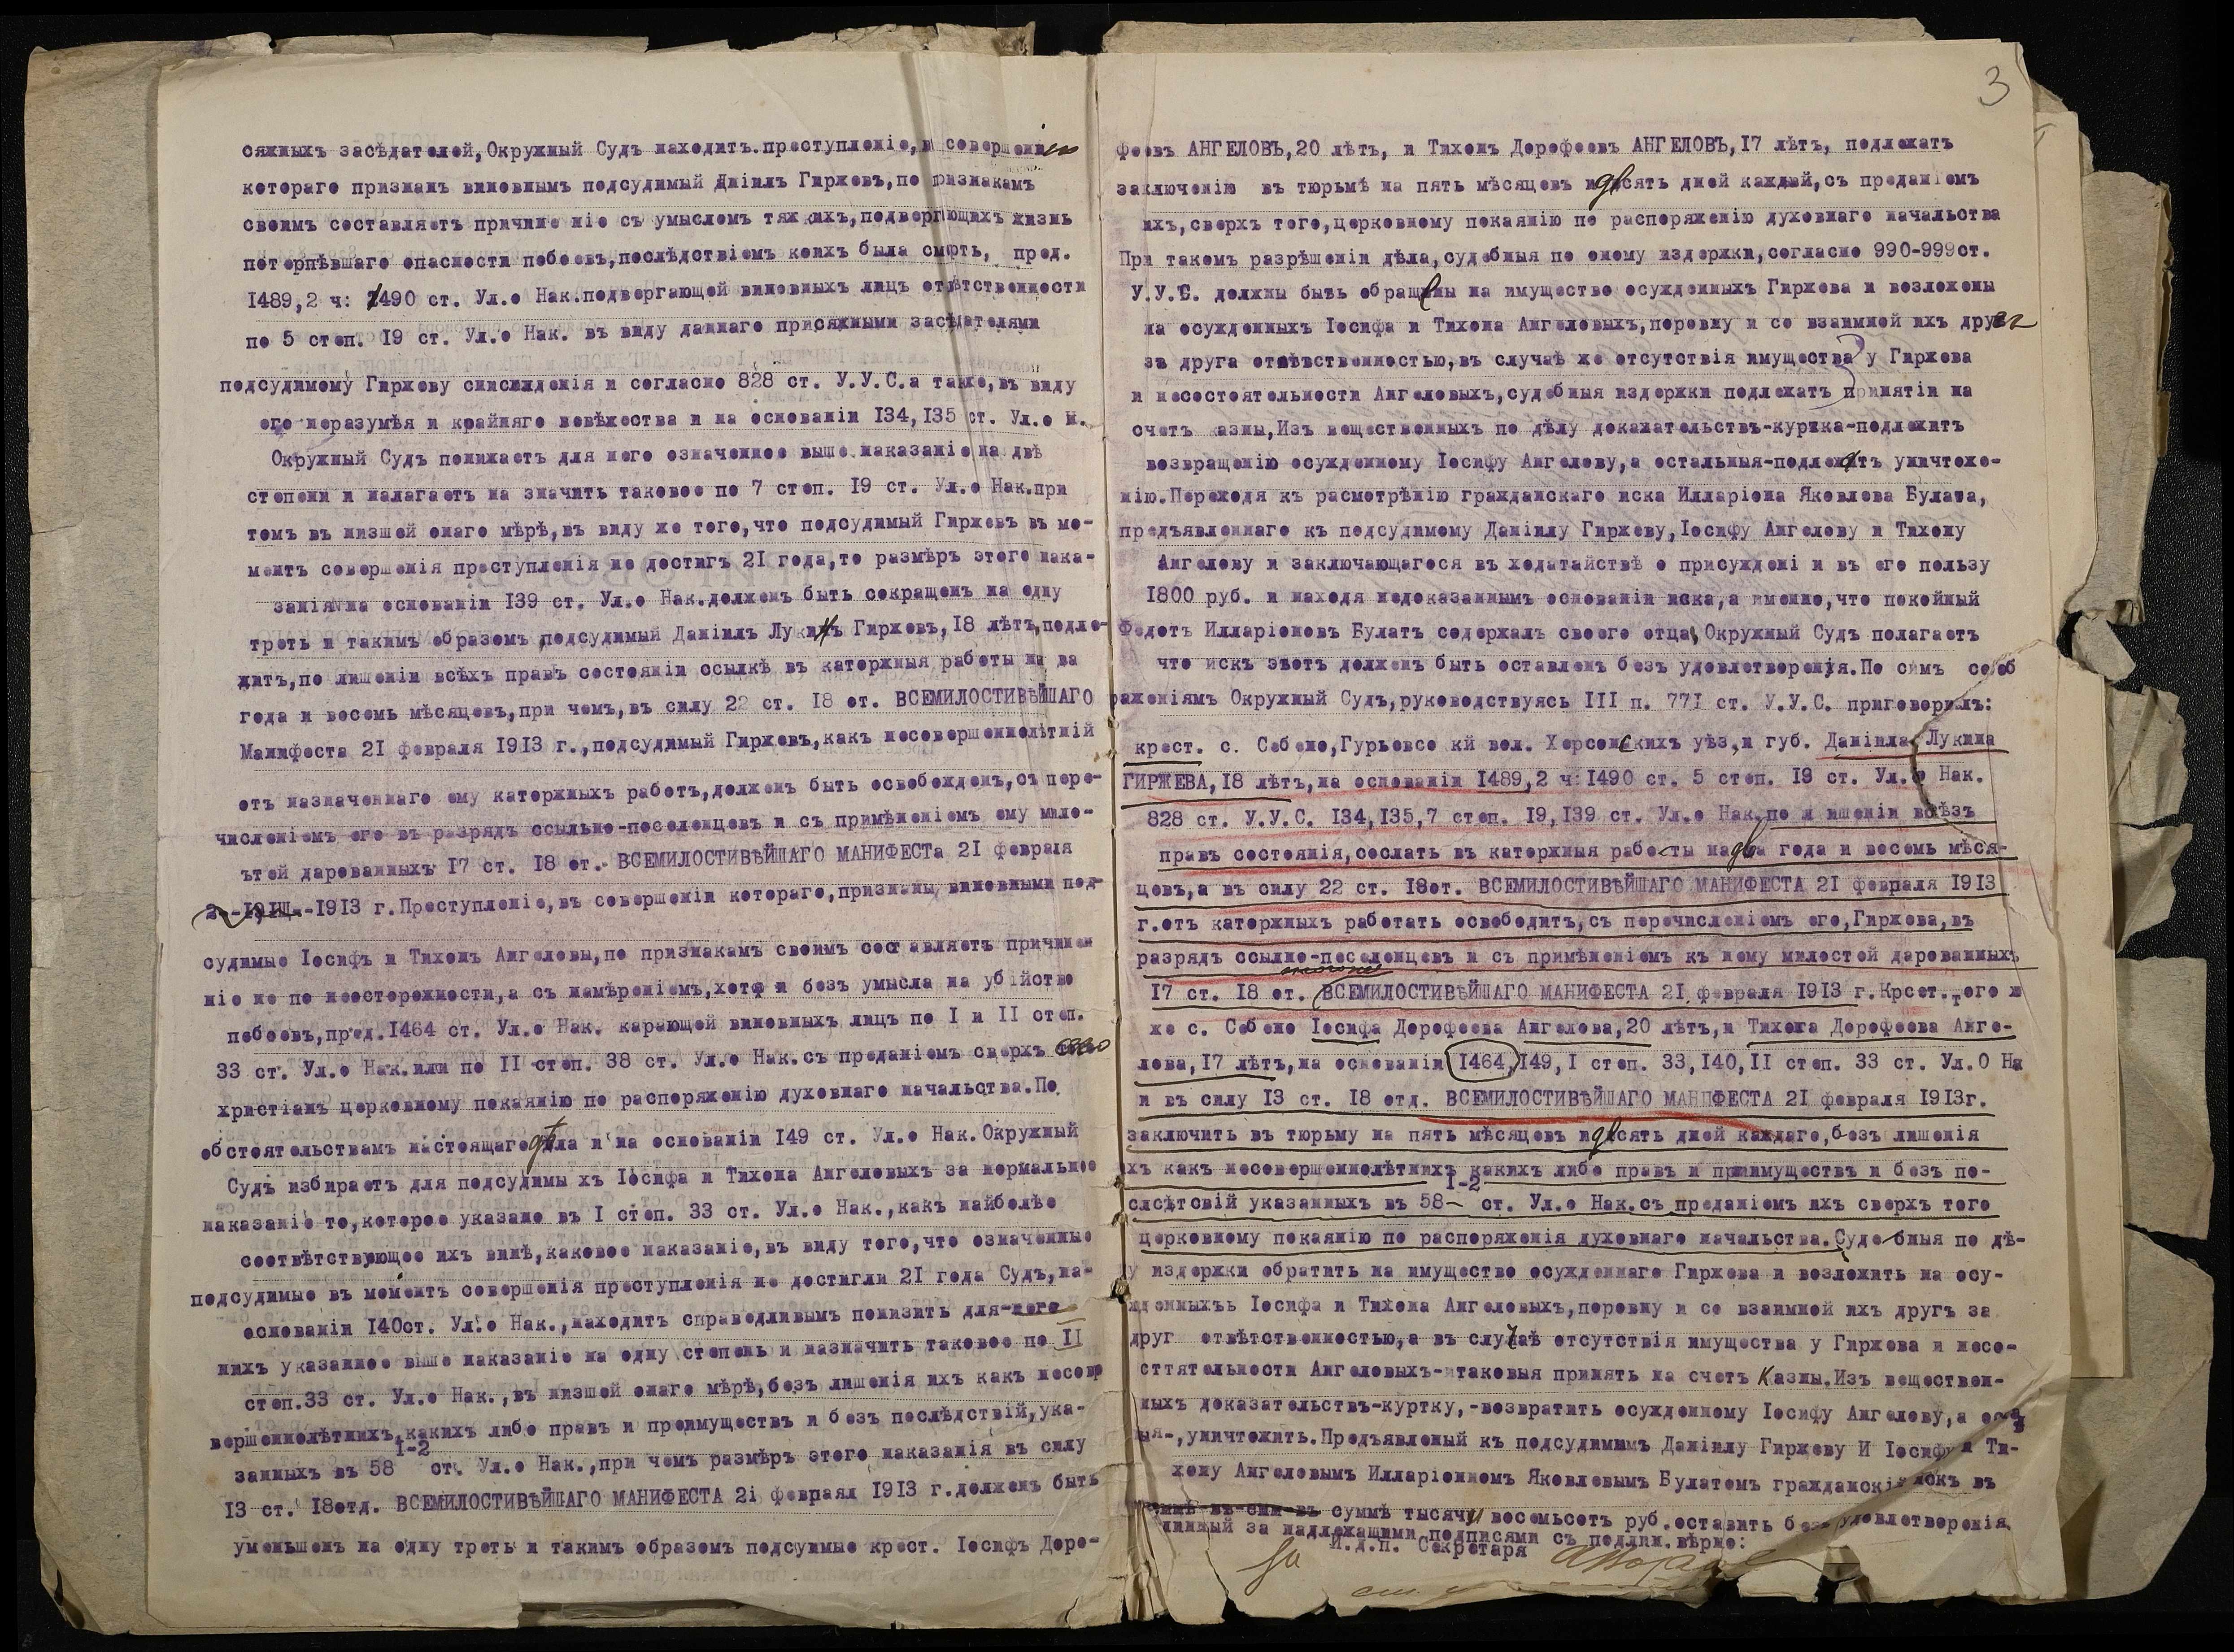 сяжныхъ засѣдателей,Окружный Судъ находитъ.преступленіе,в совершеніи
котораго признанъ виновнымъ подсудимый Дніилъ Гиржевъ,по ризнакамъ
своимъ составляетъ причине ніе съ умысломъ тяжкихъ,подвергющихъ жизнь
потерпѣвшаго опасности побоевъ,послѣдствіемъ коихъ была смрть, пред.
1489,2 ч: 1490 ст. Ул.о Нак.подвергающей виновныхъ лицъ отвѣтственности
по 5 степ. 19 ст. Ул.о Нак. въ виду даннаго присяжными засѣдателями
подсудимому Гиржеву снисхжденія и согласно 828 ст. У.У.С.а также,въ виду
его неразумѣя и крайняго невѣжества и на основаніи 134,135 ст. Ул.о Н.
Окружный Судъ понижаетъ для него означенное выше наказаніе на двѣ
степени и налагаетъ на значить таковое по 7 степ. 19 ст. Ул.о Нак.при
томъ въ низшей онаго мѣрѣ,въ виду же того,что подсудимый Гиржевъ въ мо-
ментъ совершенія преступленія не достигъ 21 года,то размѣръ этого нака-
занія на основаніи 139 ст. Ул.о Нак.долженъ быть сокращенъ на одну
треть и такимъ образомъ подсудимый Даніилъ Лукинъ Гиржевъ,18 лѣтъ,подле-
житъ,по лишеніи всѣхъ правъ состояніи ссылкѣ въ каторжныя работы на ва
года и восемь мѣсяцевъ,при чемъ,въ силу 22 ст. 18 от. ВСЕМИЛОСТИВѣЙШАГО
Манифеста 21 февраля 1913 г.,подсудимый Гиржевъ,какъ несовершеннолѣтній
отъ назначеннаго ему каторжныхъ работъ,долженъ быть освобожденъ,съ пере-
численіемъ его въ разрядъ ссыльно-поселенцевъ и съ примѣненіемъ ему мило-
ътей дарованныхъ 17 ст. 18 от. ВСЕМИЛОСТИВѣЙШАГО МАНИФЕСТа 21 февраля
1913 г.Преступленіе,въ совершеніи котораго,признаны виновными под-
судимые Іосифъ и Тихонъ Ангеловы,по признакамъ своимъ составляетъ причинен
ніе не по неосторожности,а съ намѣреніемъ,хотя и безъ умысла на убійство
побоевъ,пред.1464 ст. Ул.о Нак. карающей виновныхъ лицъ по I и II степ.
33 ст. Ул.о Нак.или по II степ. 38 ст. Ул.о Нак.съ преданіемъ сверхъ
христіанъ церковному покаянію по распоряженію духовнаго начальства.По
обстоятельствамъ настоящаго дѣла и на основаніи 149 ст. Ул.о Нак.Окружный
Судъ избираетъ для подсудимы хъ Іосифа и Тихона Ангеловыхъ за нормальное
наказаніе то,которое указано въ I степ. 33 ст. Ул.о Нак.,какъ наиболѣе
соотвѣтствующее ихъ винѣ,каковое наказаніе,въ виду того,что означенные
подсудимые въ моментъ совершенія преступленія не достигли 21 года Судъ,на-
основаніи 140ст. Ул.о Нак.,находитъ справедливымъ понизить для-него
нихъ указанное выше наказаніе на одну степень и назначить таковое по II
степ.33 ст. Ул.о Нак.,въ низшей онаго мѣрѣ,безъ лишенія ихъ какъ несовр
вершеннолѣтнихъ,какихъ либо правъ и преимуществъ и безъ послѣдствій,ука-
занныхъ въ 58 I-2 ст. Ул.о Нак.,при чемъ размѣръ этого наказанія въ силу
13 ст. 18отд. ВСЕМИЛОСТИВѣЙШАГО МАНИФЕСТА 2і февраял 1913 г.долженъ быть
уменьшенъ на одну треть и такимъ образомъ подсуимые крест. Іосифъ Доро-
3
феевъ АНГЕЛОВЪ,20 лѣтъ, и Тихонъ Дорофеевъ АНГЕЛОВЪ,17 лѣтъ, подлежатъ
заключенію въ тюрьмѣ на пять мѣсяцевъ и десять дней каждый,съ преданіемъ
ихъ,сверхъ того,церковному покаянію по распоряженію духовнаго начальства
При такомъ разрѣшеніи дѣла,судебныя по оному издержки,согласно 990-999ст.
У.У.С. должны быть обращены на имущество осужденныхъ Гиржева и возложены
на осужденныхъ Іосифа и Тихона Ангеловыхъ,поровну и со взаимной ихъ друг
за друга отвѣтственностью,въ случаѣ же отсутствія имущества у Гиржева
и несостоятельности Ангеловыхъ,судебныя издержки подлежатъ принятіи на
счетъ казны,Изъ вещественныхъ по дѣлу доказательствъ-куртка-подлежитъ
возвращенію осужденному Іосифу Ангелову,а остальныя-подлежатъ уничтоже-
нію.Переходя къ расмотрѣнію гражданскаго иска Илларіона Яковлева Булата,
предъявленнаго къ подсудимому Даніилу Гиржеву,Іосифу Ангелову и Тихону
Ангелову и заключающагося въ ходатайствѣ о присуждені и въ его пользу
1800 руб. и находя недоказаннымъ основаніи иска,а именно,что покойный
Федотъ Илларіоновъ Булатъ содержалъ своего отца Окружный Судъ полагаетъ
что искъ этотъ долженъ быть оставленъ безъ удовлетворенія.По симъ сооб
раженіямъ Окружный Судъ,руководствуясь III п. 771 ст. У.У.С. приговорилъ:
крест. с. Себино,Гурьевсо кй вол. Херсонскихъ уѣз,и губ. Даніила Лукина
ГИРЖЕВА,18 лѣтъ,на основаніи 1489,2 ч:1490 ст. 5 степ. 19 ст. Ул.о Нак.
828 ст. У.У.С. 134,135,7 степ. 19,139 ст. Ул.о Нак.по л ишеніи всѣзъ
правъ состоянія,сослать въ каторжныя работы на два года и восемь мѣся-
цевъ,а въ силу 22 ст. 18от. ВСЕМИЛОСТИВѣЙШАГО МАНИФЕСТА 21 февраля 1913
г.отъ каторжныхъ работать освободитъ,съ перечисленіемъ его,Гиржева,въ
разрядъ ссылно-поселенцевъ и съ примѣненіемъ къ нему милостей дарованныхъ
17 ст. 18 от. ВСЕМИЛОСТИВѣЙШАГО МАНИФЕСТА 21 февраля 1913 г.Крсет. того ж
же с. Себено Іосифа Дорофеева Ангелова,20 лѣтъ,и Тихона Дорофеева Анге-
лова,17 лѣтъ,на основаніи 1464,149,I степ. 33,140,II степ. 33 ст. Ул.О На
и въ силу 13 ст. 18 отд. ВСЕМИЛОСТИВѣЙШАГО МАНПФЕСТА 21 февраля 1913г.
заключить въ тюрьму на пять мѣсяцевъ и десять дней каждаго,безъ лишенія
ихъ какъ несовершеннолѣтнихъ какихъ либо правъ и приимуществъ и безъ по-
слсѣтсвій указанныхъ въ 58 I-2 ст. Ул.о Нак.съ преданіемъ ихъ сверхъ того
церковному покаянію по распоряженія духовнаго начальства.Судебныя по дѣ-
у издержки обратить на имущество осужденнаго Гиржева и возложить на осу-
жденныхъъ Іосифа и Тихона Ангеловыхъ,поровну и со взаимной ихъ другъ за
друг отвѣтственностью,а въ случаѣ отсутствія имущества у Гиржева и несо-
сттятельности Ангеловыхъ-таковыя принять на счетъ Казны.Изъ веществен-
ныхъ доказательствъ-куртку,-возвратить осужденному Іосифу Ангелову,а
ыя-,уничтожить.Предъявленый къ подсудимымъ Даніилу Гиржеву И Іосифу и Ти-
хону Ангеловымъ Илларіономъ Яковлевымъ Булатомъ гражданскій искъ въ
суммѣ тысячи восемьсотъ руб.оставить безъ удовлетворенія.
линный за надлежащими подписями съ подлин.вѣрно:
И.д.п. Секретаря
За